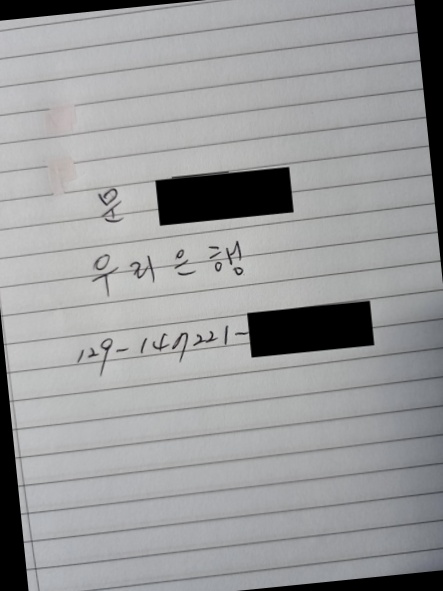 송
우리은행
129-147221-